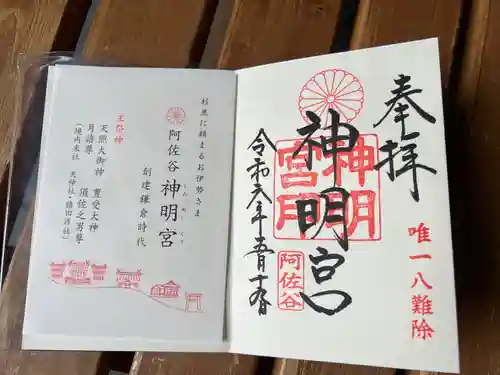 奉拝
唯一八難除
神明宮
神明宮
阿佐谷
令和六年五月十九日
杉並に鎮まるお伊勢さま
阿佐谷 神明宮
しんめいぐう
創建鎌倉時代
主祭神
天照大御神 豊受大神
月讀尊 須佐之男尊
(境内末社 天神社・猿田彦社)